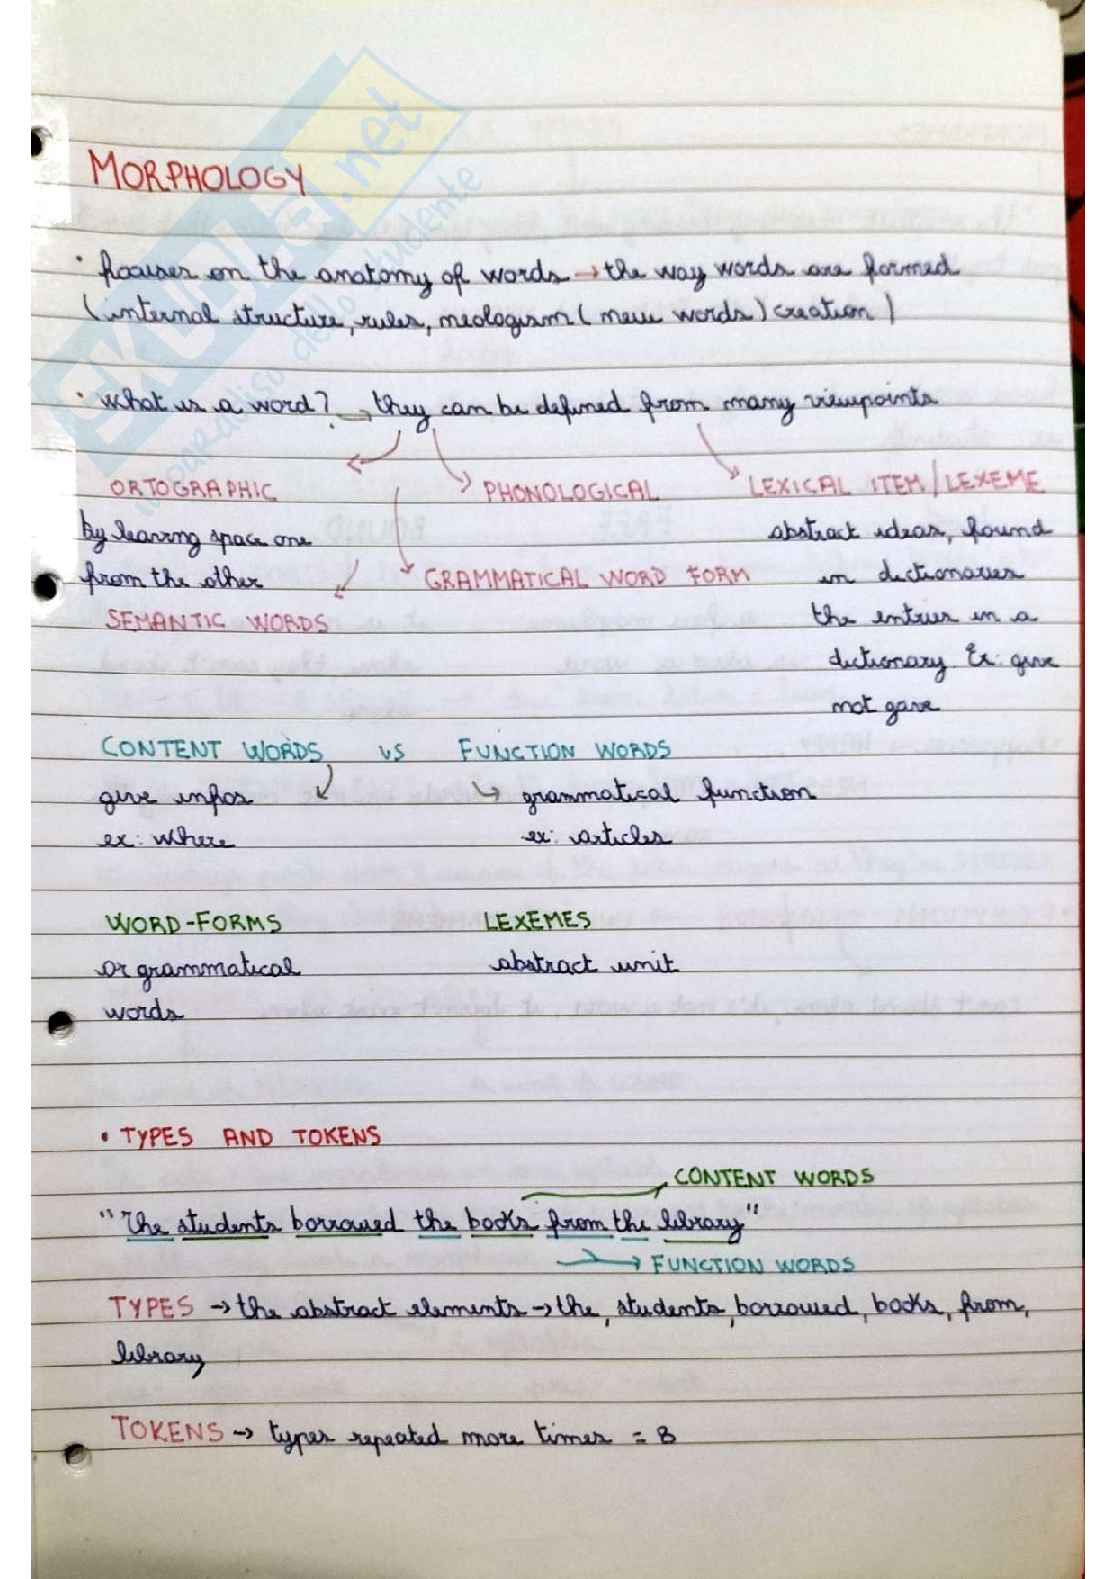 MORPHOLOGY
• focuses on the anatomy of words → the way words are formed
(internal structure, rules, neologism (new words) creation)
• What is a word? → they can be defined from many viewpoints
ORTOGRAPHIC
by leaving space one
from the other
SEMANTIC WORDS
PHONOLOGICAL
GRAMMATICAL WORD FORM
LEXICAL ITEM/LEXEME
abstract ideas, found
in dictionaries
the entries in a
dictionary Ex: give
not gave
CONTENT WORDS vs FUNCTION WORDS
give infos
ex: where
↳ grammatical function
ex: articles
WORD-FORMS
or grammatical
words
LEXEMES
abstract unit
• TYPES AND TOKENS
→ CONTENT WORDS
"The students borrowed the books from the library"
→ FUNCTION WORDS
TYPES → the abstract elements → the, students, borrowed, books, from,
library
TOKENS → types repeated more times = 8
SKUOLA.net
il paradiso dello studente